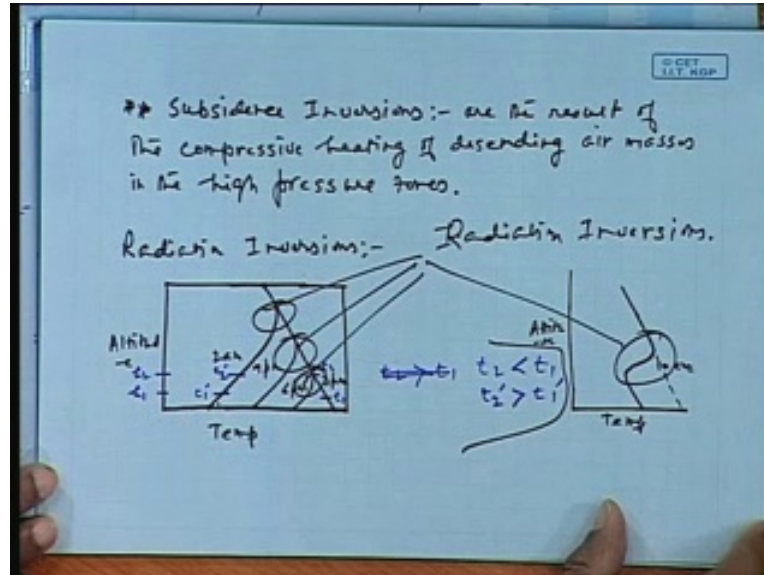 © CET
I.I.T. KGP
** Subsidence Inversions:- are the result of
the compressive heating of desending air masses
in the high pressure zones.
Radiation Inversions:- Radiation Inversion.
Altitud
-e
t₂
t₁
2am
t₂'
t₁'
4pm
6pm
3pm
t₁
Temp
t₂ < t₁
t₂' > t₁'
10am
Temp